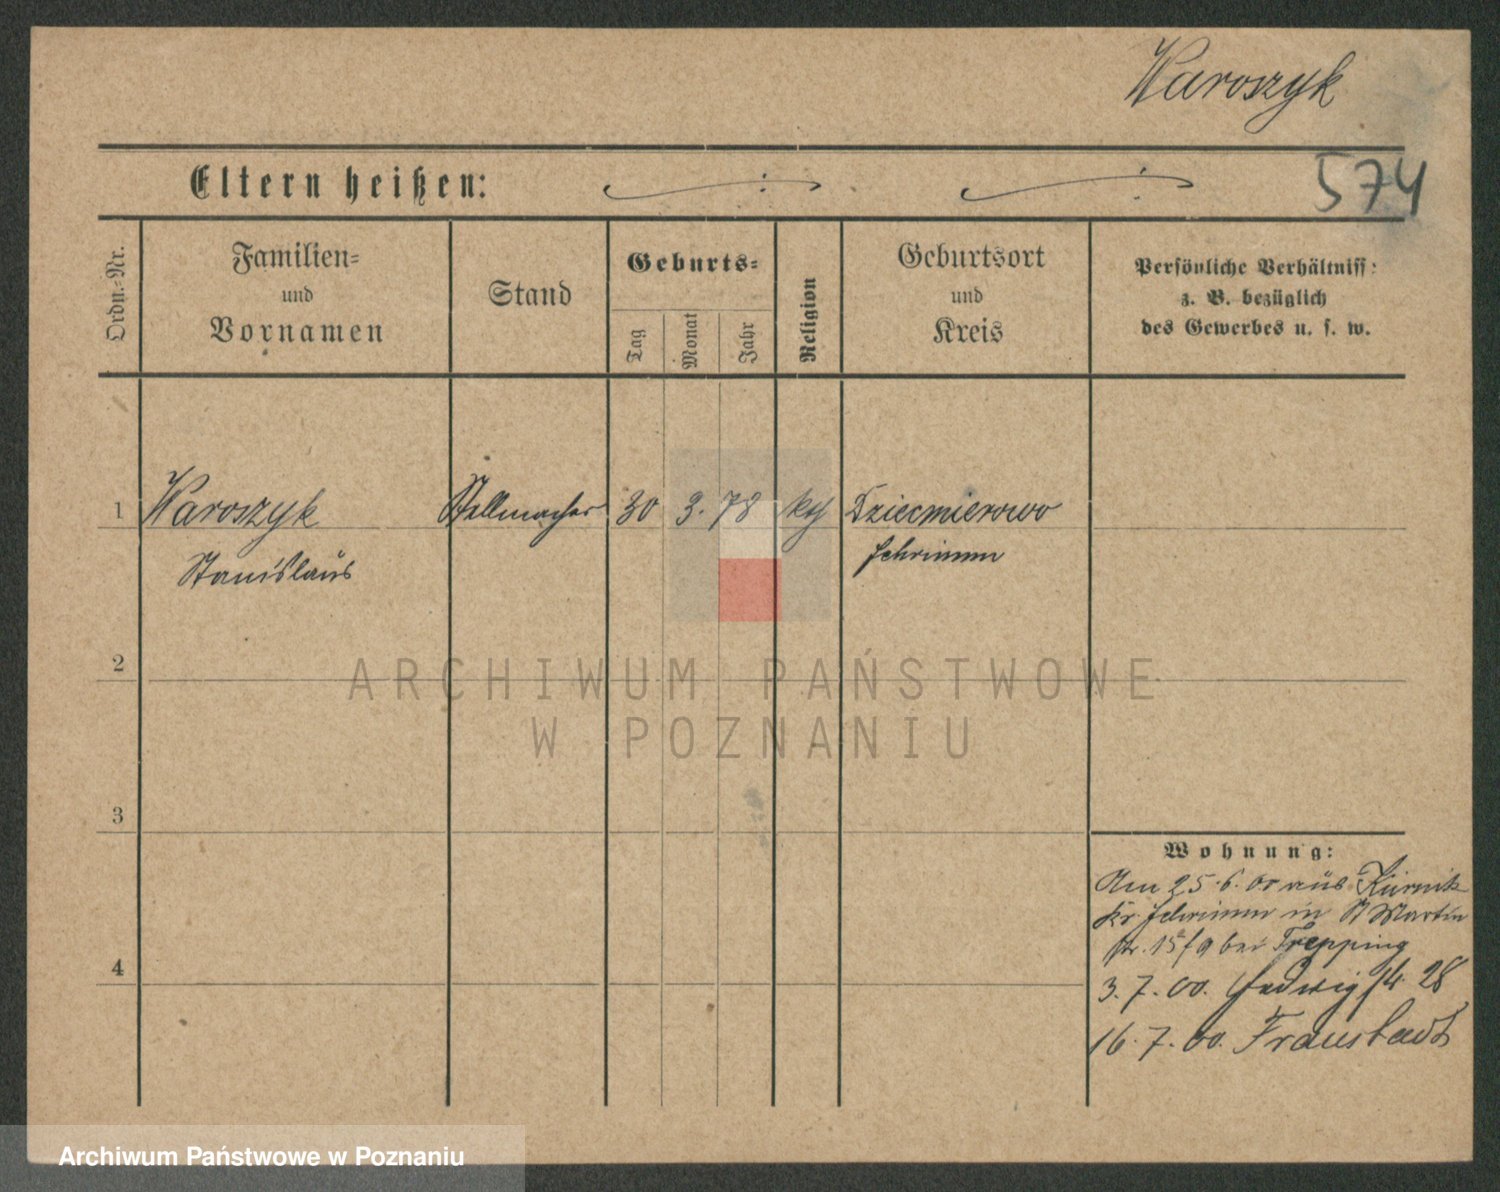 Waroszyk
Eltern heißen:
574
Ordn.-Nr.
Familien-
und
Vornamen
Stand
Geburts-
Tag
Monat
Jahr
Religion
Geburtsort
und
Kreis
Persönliche Verhältniss:
z. B. bezüglich
des Gewerbes u. s. w.
1 Waroszyk Stellmacher 30 3. 78 kg Dziecmierowo
Stanislaus Schrimm
2
ARCHIWUM PAŃSTWOWE
W POZNANIU
3
4
Wohnung:
Am 25.6.00 aus Kurnik
Kr. Schrimm in St Martin
str. 15/9 bei Trepping
3.7.00. Hedwig str. 28
16.7.00. Fraustadt
Archiwum Państwowe w Poznaniu